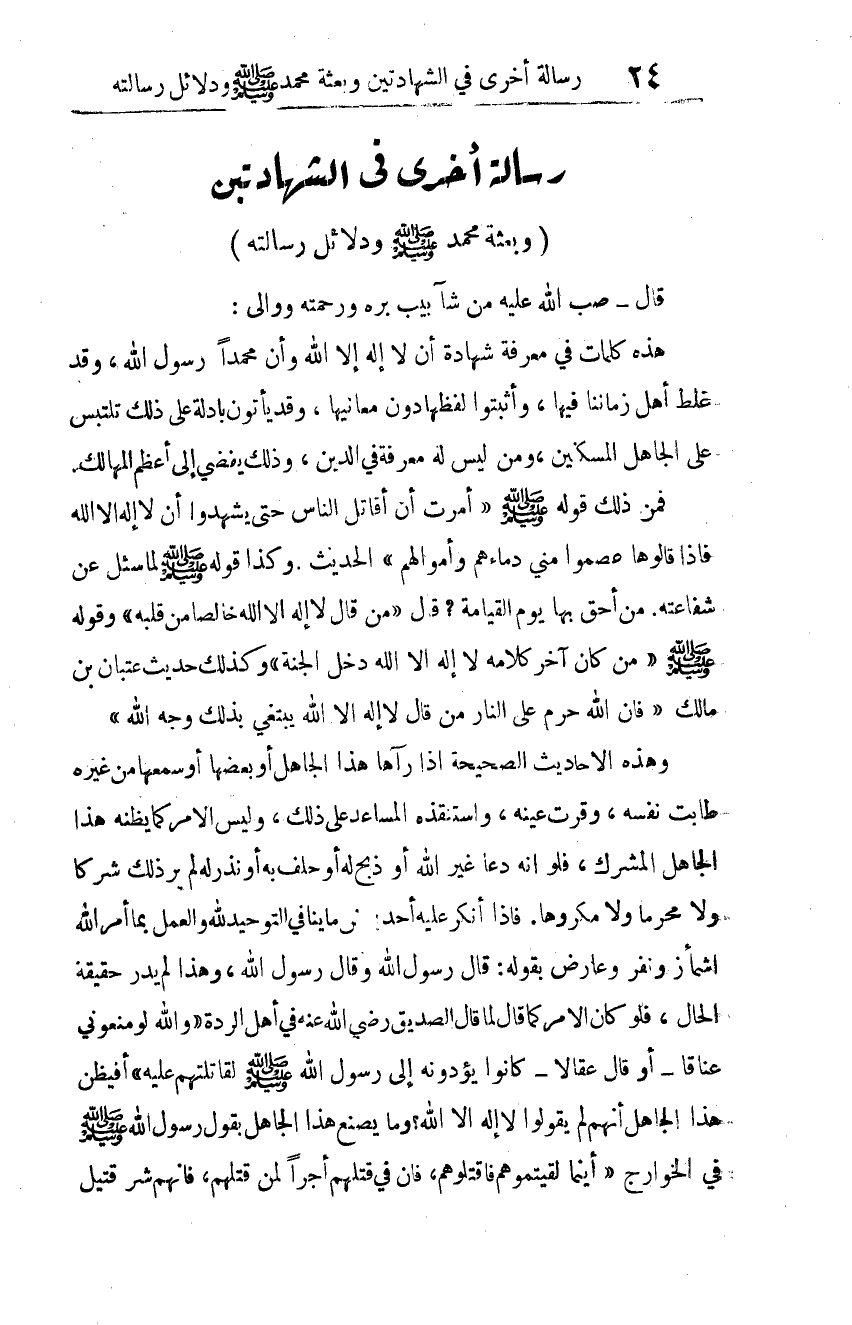 ٢٤ رسالة أخرى في الشهادتين وبعثة محمد ﷺ ودلائل رسالته
رسالة أخرى في الشهادتين
( وبعثة محمد ﷺ ودلائل رسالته )
قال ـ صب الله عليه من شآبيب بره ورحمته ووالى :
هذه كلمات في معرفة شهادة أن لا إله إلا الله وأن محمداً رسول الله ، وقد
غلط أهل زماننا فيها ، وأثبتوا لفظها دون معانيها ، وقد يأتون بادلة على ذلك تلتبس
على الجاهل المسكين ، ومن ليس له معرفة في الدين ، وذلك يفضي إلى أعظم المهالك.
فمن ذلك قوله ﷺ « أمرت أن أقاتل الناس حتى يشهدوا أن لا إله الا الله
فاذا قالوها عصموا مني دماءهم وأموالهم » الحديث . وكذا قوله ﷺ لما سئل عن
شفاعته. من أحق بها يوم القيامة ? قال « من قال لا إله الا الله خالصا من قلبه» وقوله
ﷺ « من كان آخر كلامه لا إله الا الله دخل الجنة» وكذلك حديث عتبان بن
مالك « فان الله حرم على النار من قال لا إله الا الله يبتغي بذلك وجه الله »
وهذه الاحاديث الصحيحة اذا رآها هذا الجاهل أو بعضها أو سمعها من غيره
طابت نفسه ، وقرت عينه ، واستنقذه المساعد على ذلك ، وليس الامر كما يظنه هذا
الجاهل المشرك ، فلو انه دعا غير الله أو ذبح له أو حلف به أو نذر له لم ير ذلك شركا
ولا محرما ولا مكروها. فاذا أنكر عليه أحد ما ينافي التوحيد لله والعمل بما أمر الله
اشمأز ونفر وعارض بقوله: قال رسول الله وقال رسول الله ، وهذا لم يدر حقيقة
الحال ، فلو كان الامر كما قال لما قال الصديق رضي الله عنه في أهل الردة « والله لو منعوني
عناقا ـ أو قال عقالا ـ كانوا يؤدونه إلى رسول الله ﷺ لقاتلتهم عليه» أفيظن
هذا الجاهل أنهم لم يقولوا لا إله الا الله؟ وما يصنع هذا الجاهل بقول رسول الله ﷺ
في الخوارج « أينما لقيتموهم فاقتلوهم، فان في قتلهم أجراً لمن قتلهم، فانهم شر قتيل